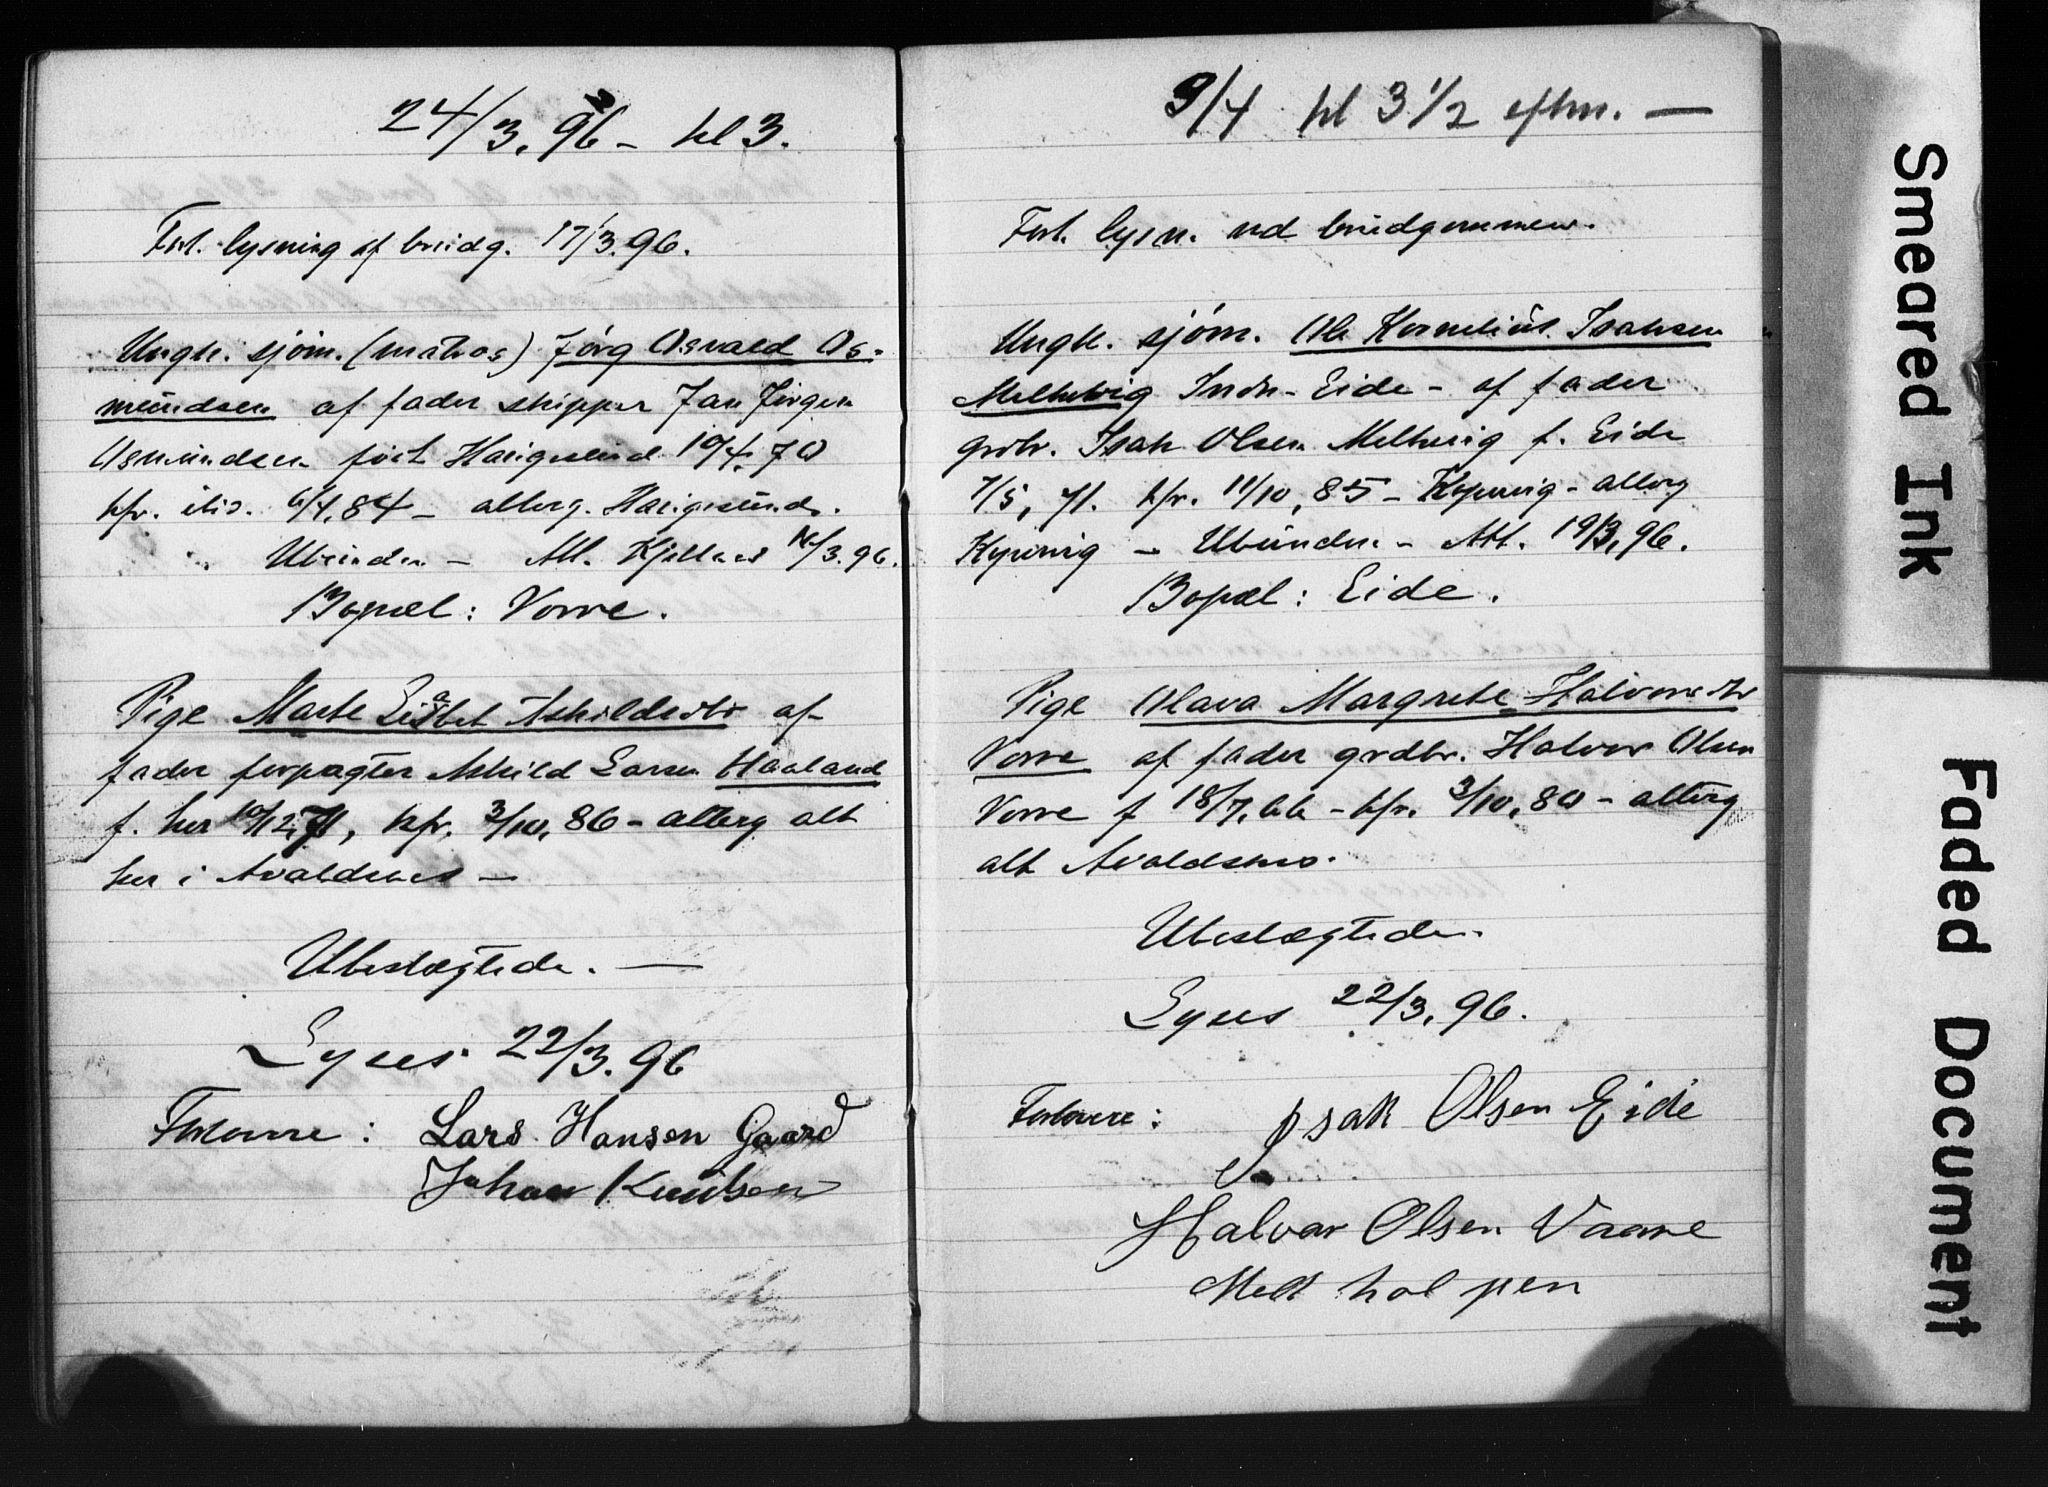 24/3. 96 – kl 3.
Forl. lysning af brudg. 17/3. 96.
Ungk. sjöm. (matros) Jörg Osvald Os-
mundsen af fader skipper Jan Jörgen
Osmundsen född Haugesund 10/4. 70
kfr. ibid. 6/4, 84 – altberg. Haugesund.
Ubunden – Att. Kjellnes 14/3. 96.
Bopæl: Vorre.
Pige Marte Lisabet Askildsdtr af
fader forpagter Askild Larsen Haaland
f. her 10/12. 71, kfr. 3/10, 86 – altberg alt
her i Avaldsnes –
Ubeslægtede. —
Lyses. 22/3. 96
Forlovere: Lars Hansen Gaard
Johan Knudsen
9/4 kl 3 1/2 eftm. —
Forl. lysn. ved brudgommen.
Ungk. sjöm. Ole Kornelius Isaksen
Melhevig Indr-Eide – af fader
grdbr. Isak Olsen Melhevig f. Eide
7/5, 71. kfr. 11/10, 85 – Kopervig – altberg
Kopervig – Ubunden – Att. 19/3, 96.
Bopæl: Eide.
Pige Olava Margrete Halvorsdtr
Vorre af fader grdbr. Halvor Olsen
Vorre f 18/7. 66 – kfr. 3/10, 80 – altberg
alt Avaldsnes.
Ubeslægtede.
Lyses 22/3, 96.
Forlovere: Isak Olsen Eide
Halvar Olsen Vaare
Med hol pen
Smeared Ink
Faded Document